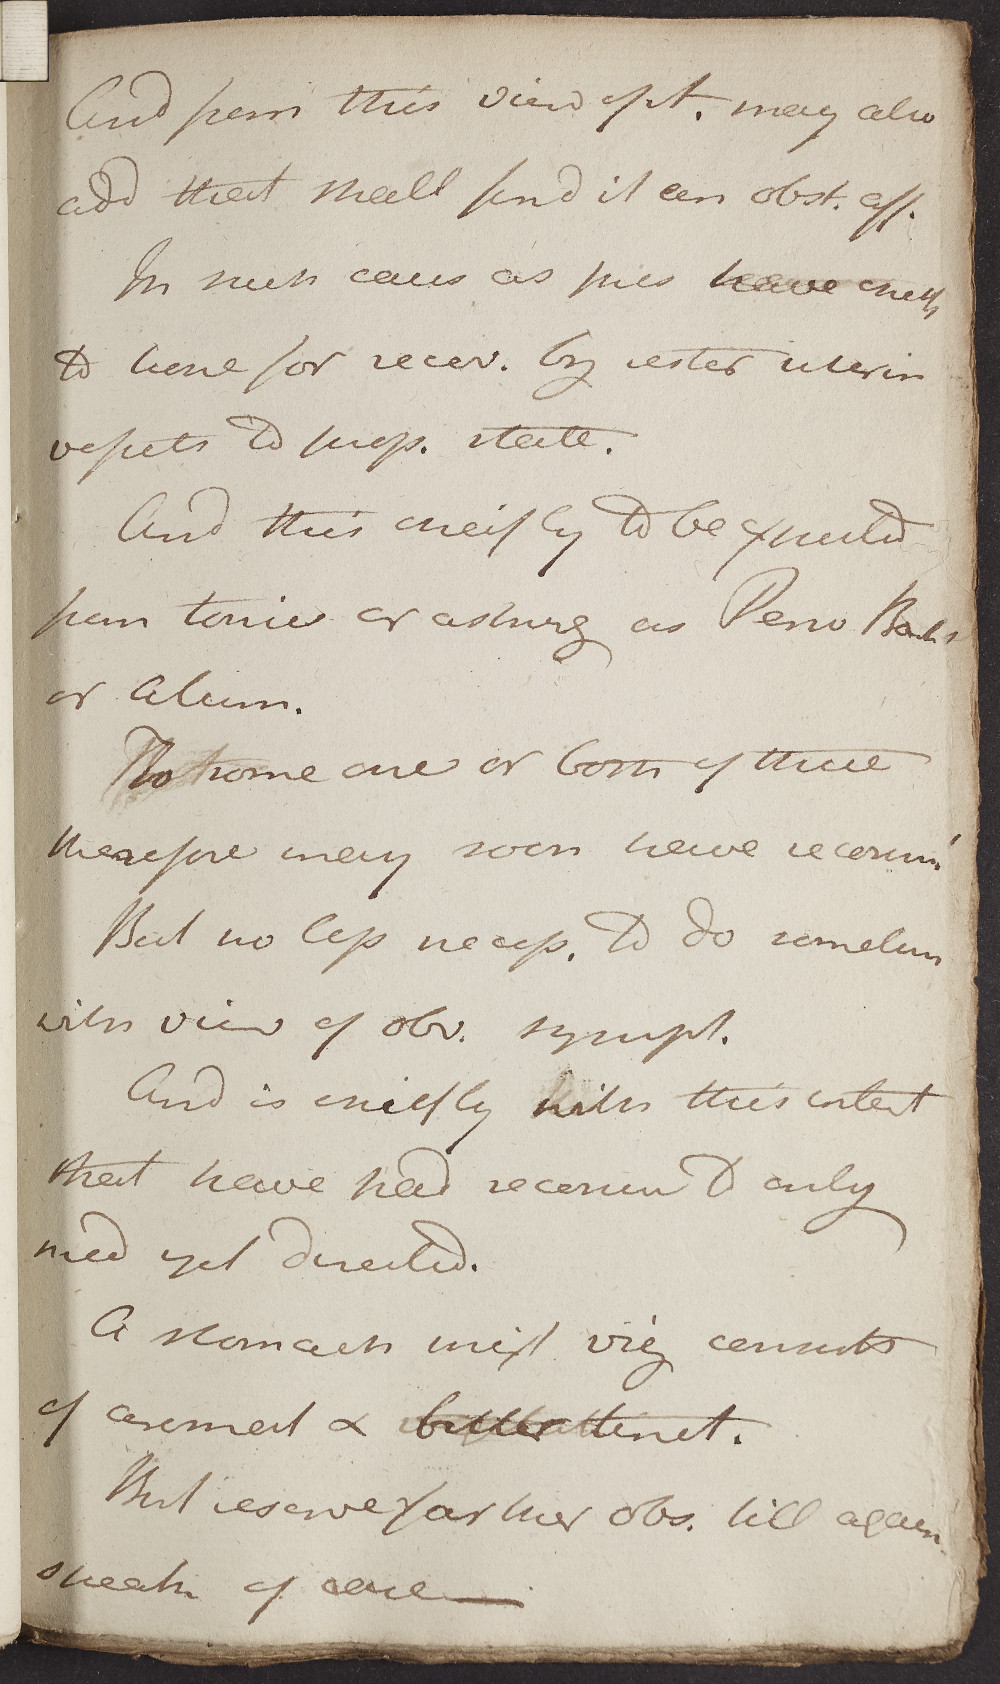 And from this view of pt. may also
add that shall find it an obst. aff.
In such cases as pres have chiefly
to hope for recov. by restor uterin
vessels to prop. state.
And this chiefly to be expected
from tonics or astring as Peruv Bark
or Alum.
To some one or both of these
therefore may soon have recomm
But no less necess. to do somethin
with view of obv. sympt.
And is chiefly with this intent
that have had recomm to only
med yet directed.
A stomach mixt. viz consists
of aromat & bitter tinct.
But reserve farther obs. till again
speak of case